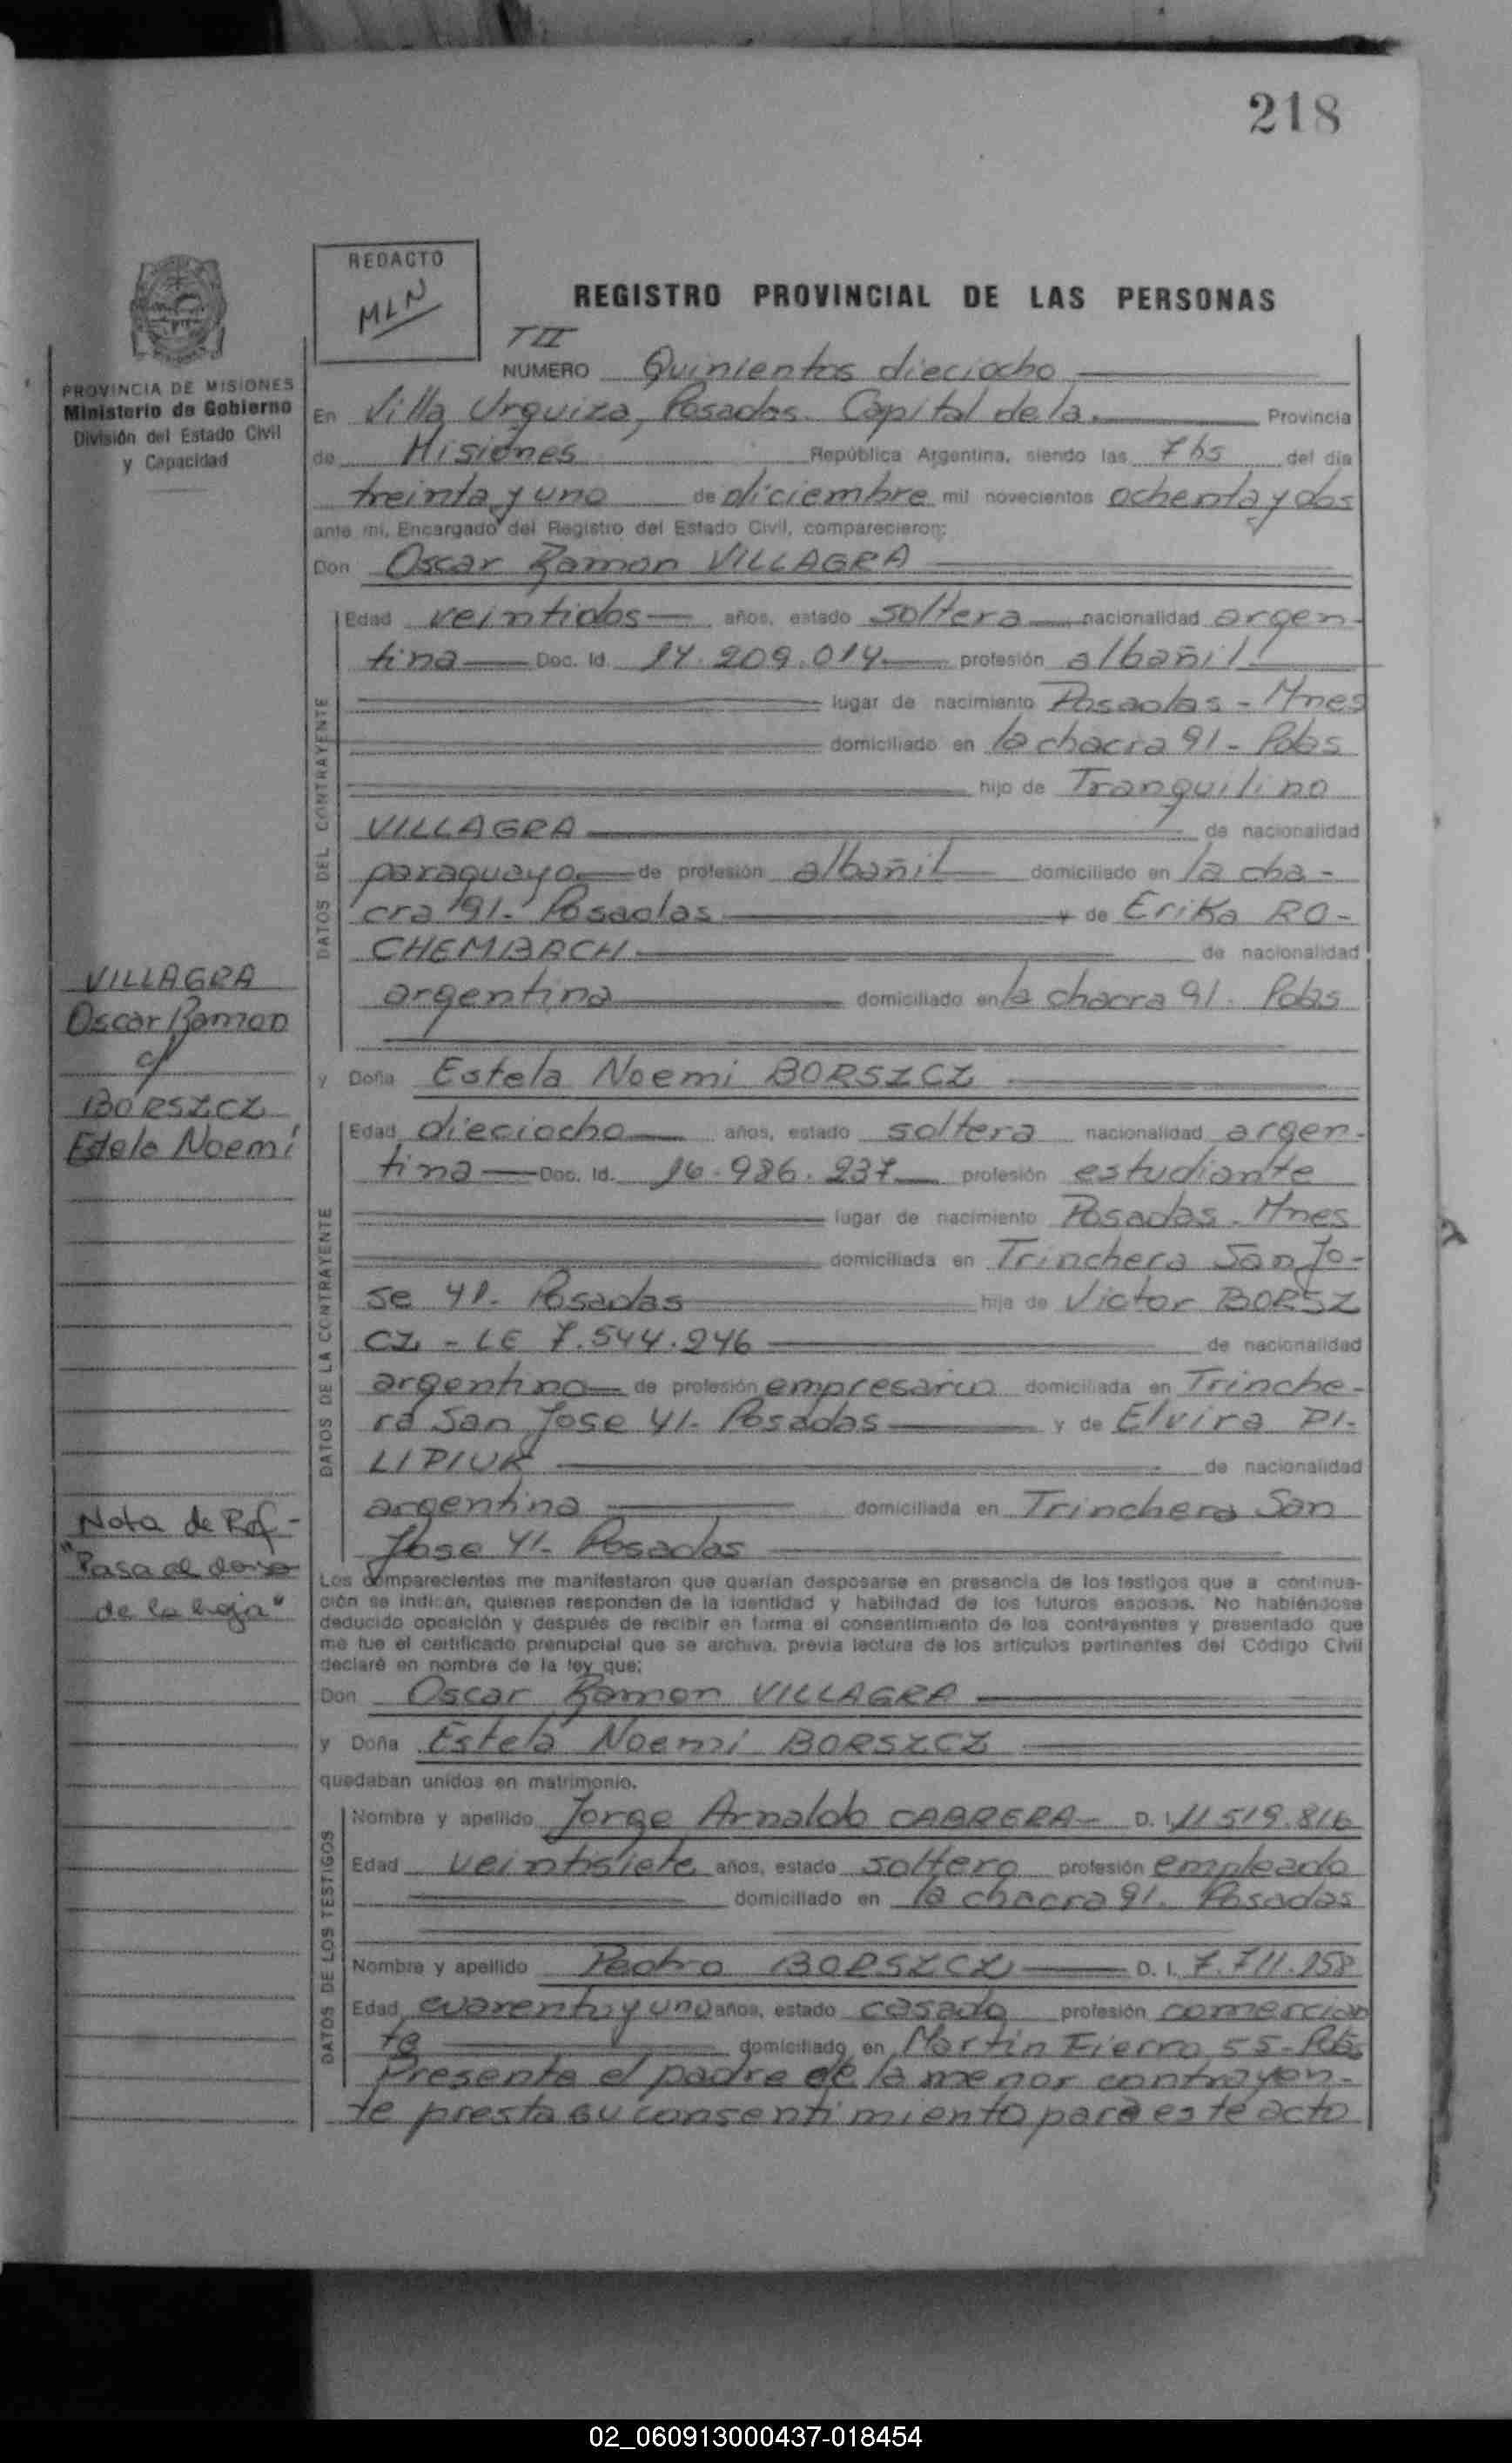 218
REDACTO
MLN
REGISTRO PROVINCIAL DE LAS PERSONAS
T III
NUMERO Quinientos dieciocho
PROVINCIA DE MISIONES
Ministerio de Gobierno
División del Estado Civil
y Capacidad
En Villa Urquiza, Posadas. Capital de la Provincia
de Misiones República Argentina, siendo las 7 hs del día
treinta y uno de diciembre mil novecientos ochenta y dos
ante mí, Encargado del Registro del Estado Civil, comparecieron:
Don Oscar Ramon VILLAGRA
DATOS DEL CONTRAYENTE
Edad veintidos años, estado soltero nacionalidad argen-
tina Doc. Id. 14.209.014 profesión albañil
lugar de nacimiento Posadas - Mnes
domiciliado en la chacra 91 - Pdas
hijo de Tranquilino
VILLAGRA de nacionalidad
paraguaya de profesión albañil domiciliado en la cha-
cra 91- Posadas y de Erika RO-
CHEMBACH de nacionalidad
argentina domiciliado en la chacra 91. Pdas
VILLAGRA
Oscar Ramon
c/
BORSZCZ
Estela Noemí
y Doña Estela Noemi BORSZCZ
DATOS DE LA CONTRAYENTE
Edad dieciocho años, estado soltera nacionalidad argen-
tina Doc. Id. 16.986.237 profesión estudiante
lugar de nacimiento Posadas - Mnes
domiciliada en Trinchera San Jo-
se 41- Posadas hija de Victor BORSZ
CZ - LE 7.544.246 de nacionalidad
argentina de profesión empresario domiciliada en Trinche-
ra San Jose 41- Posadas y de Elvira PI-
LIPIUK de nacionalidad
argentina domiciliada en Trinchera San
Jose 41- Posadas
Nota de Ref-
"Pasa al dorso
de la hoja"
Los comparecientes me manifestaron que querían desposarse en presencia de los testigos que a continua-
ción se indican, quienes responden de la identidad y habilidad de los futuros esposos. No habiéndose
deducido oposición y después de recibir en forma el consentimiento de los contrayentes y presentado que
me fue el certificado prenupcial que se archiva, previa lectura de los artículos pertinentes del Código Civil
declaré en nombre de la ley que:
Don Oscar Ramon VILLAGRA
y Doña Estela Noemi BORSZCZ
quedaban unidos en matrimonio.
DATOS DE LOS TESTIGOS
Nombre y apellido Jorge Arnaldo CABRERA- D. I. 11519.816
Edad veintisiete años, estado soltero profesión empleado
domiciliado en la chacra 91. Posadas
Nombre y apellido Pedro BORSZCZ D. I. 7.711.258
Edad cuarenta y uno años, estado casado profesión comercian
te domiciliado en Martin Fierro 55- Pdas
Presente el padre de la menor contrayen-
te presta su consentimiento para este acto
02_060913000437-018454